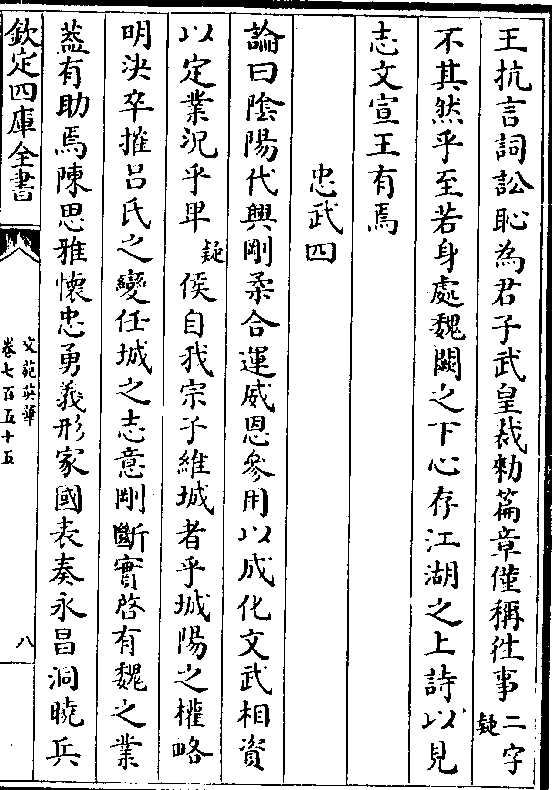 王抗言詞訟恥為君子武皇裁勑篇章僅稱徃事二字疑
不其然乎至若身處魏闕之下心存江湖之上詩以見
志文宣王有焉
忠武四
論曰陰陽代興剛柔合運威恩參用以成化文武相資
以定業況乎卑疑侯自我宗子維城者乎城陽之權略
明決卒摧吕氏之變任城之志意剛斷實啓有魏之業
葢有助焉陳思雅懷忠勇義形家國表奏永昌洞曉兵
欽定四庫全書
文苑英華
卷七百五十五
八